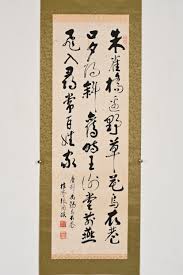 朱雀橋邊野草花烏衣巷
口夕陽斜舊時王謝堂前燕
飛入尋常百姓家